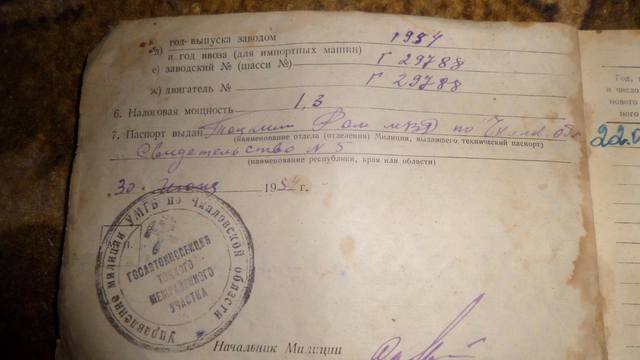 год выпуска заводом
д) и год ввоза (для импортных машин) 1954
е) заводский № (шасси №) Г 29788
ж) двигатель № Г 29788
6. Налоговая мощность 1,3
7. Паспорт выдан МВД по Чкал. обл.
(наименование отдела (отделения) Милиции, выдавшего технический паспорт)
Свидетельство № 5
(наименование республики, края или области)
30 1954 г.
Управление милиции УМГБ по Чкаловской области
ГОСАВТОИНСПЕКЦИЯ
МЕЖРАЙОННОГО
УЧАСТКА
Начальник Милиции
Год,
и число
нового
ного
22.0